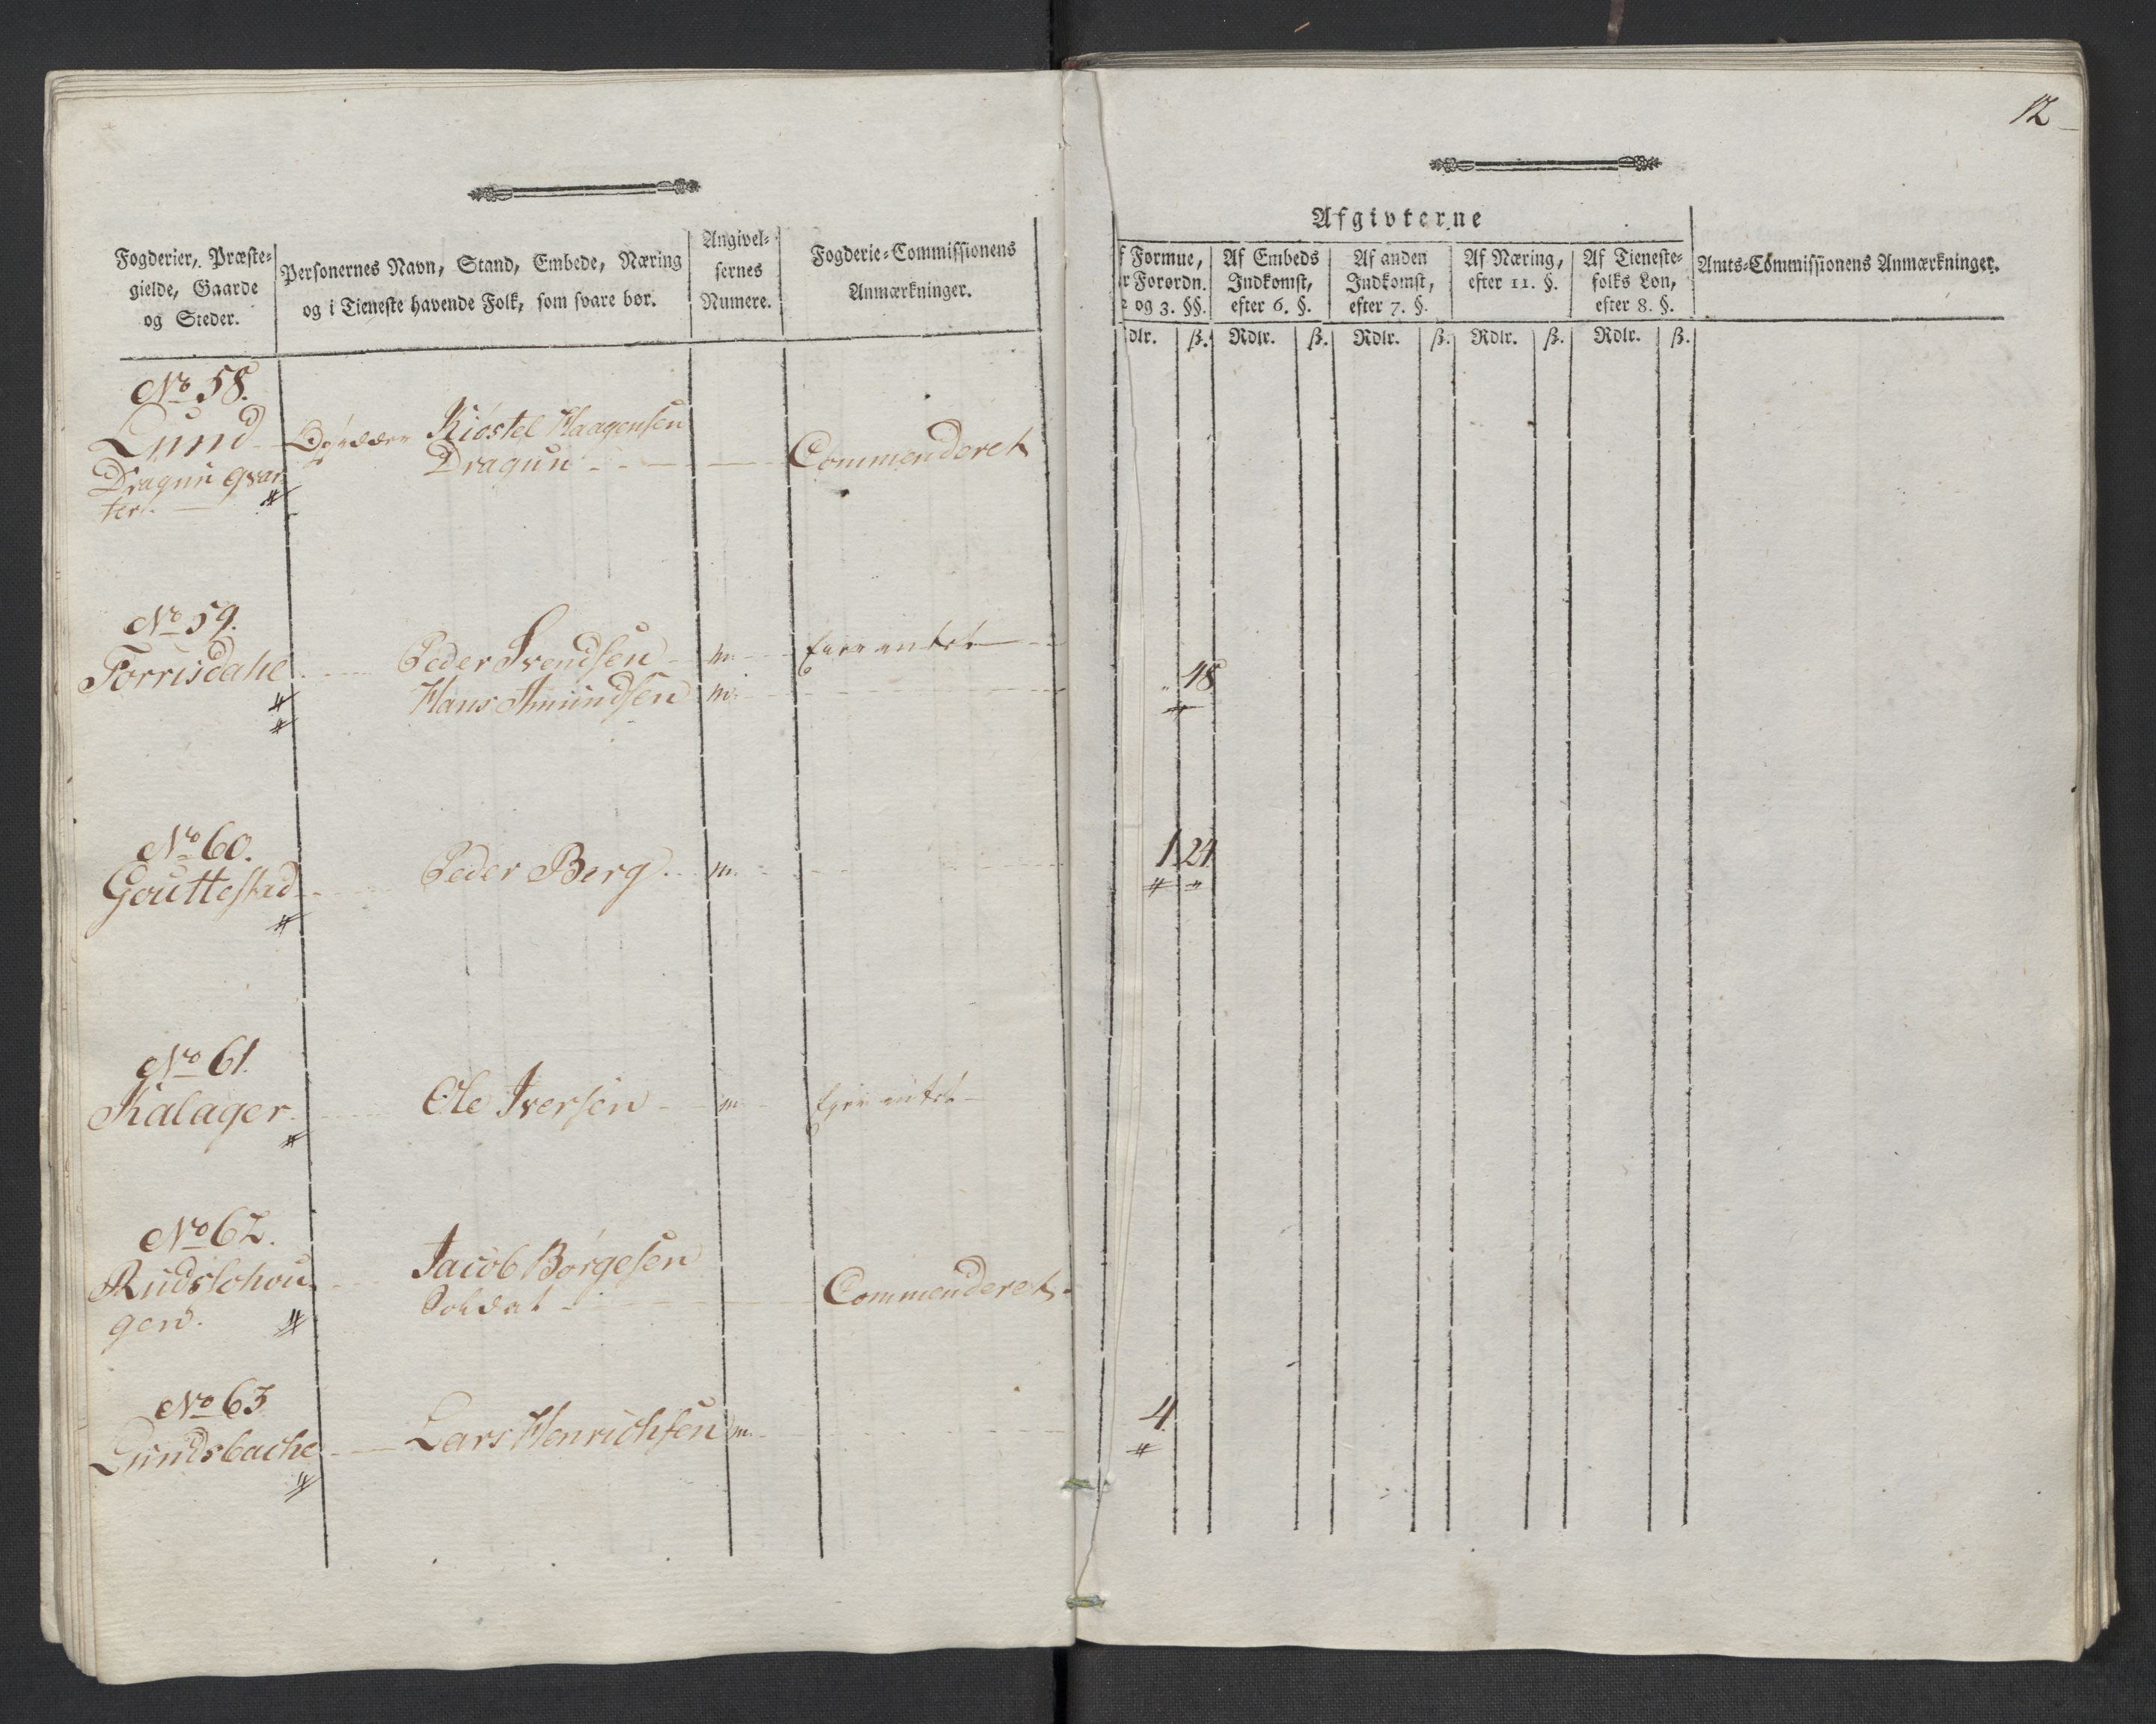 12
Fogderier, Præste-
gielde, Gaarde
og Steder.
Personernes Navn, Stand, Embede, Næring
og i Tieneste havende Folk, som svare bør.
Angivel-
sernes
Numere.
Fogderie-Commissionens
Anmærkninger.
Afgivterne
f Formue,
r Forordn.
2 og 3. §§.
Af Embeds
Indkomst,
efter 6. §.
Af anden
Indkomst,
efter 7. §.
Af Næring,
efter 11. §.
Af Tieneste-
folks Løn,
efter 8. §.
Amts-Commissionens Anmærkninger.
dlr. ß. Rdlr. ß. Rdlr. ß. Rdlr. ß. Rdlr. ß.
No 58.
Lund Kiøstel Haagensen
Dragun qvar Dragun Commenderet
ter.
No 59.
Torrisdahl Peder Svendsen m.
Hans Amundsen m. 48
No 60.
Gouttestad Peder Berg m. 1 24
No 61.
Kalager Ole Iversen m.
No 62.
Rudslohou Jacob Børgesen
gen. Soldat Commenderet
No 63
Lundsbache Lars Henrichsen m. 4